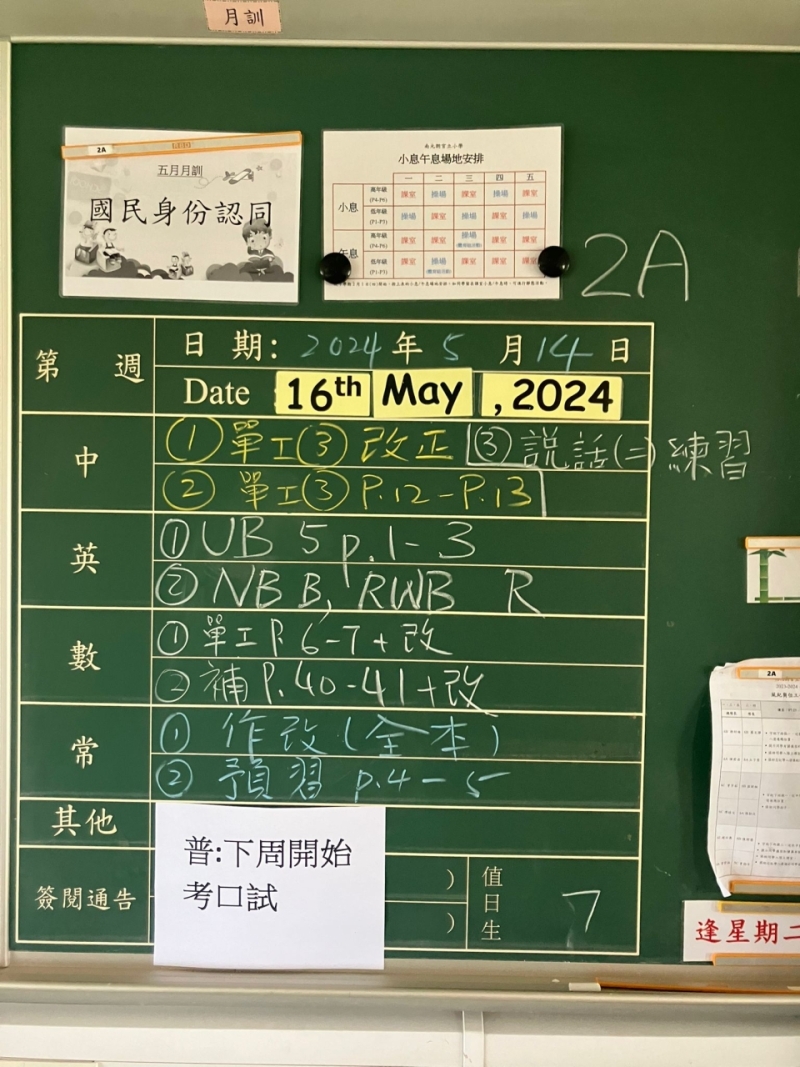 月訓
2A
五月月訓
國民身份認同
小息午息場地安排
一 二 三 四 五
小息 高年級 (P4-P6) 課室 操場 課室 操場 課室
低年級 (P1-P3) 操場 課室 操場 課室 操場
午息 高年級 (P4-P6) 課室 課室 操場 課室 課室
低年級 (P1-P3) 課室 操場 課室 課室 課室
2A
第 週
日期: 2024年5月14日
Date 16th May , 2024
中
①單工③改正 ③說話(二)練習
②單工③P.12-P.13
英
①UB 5 p.1-3
②NB B, RWB R
數
①單工P.6-7+改
②補P.40-41+改
常
①作改(全本)
②預習 p.4-5
其他
普:下周開始
考口試
簽閱通告
)
)
值日生
7
2A
逢星期二